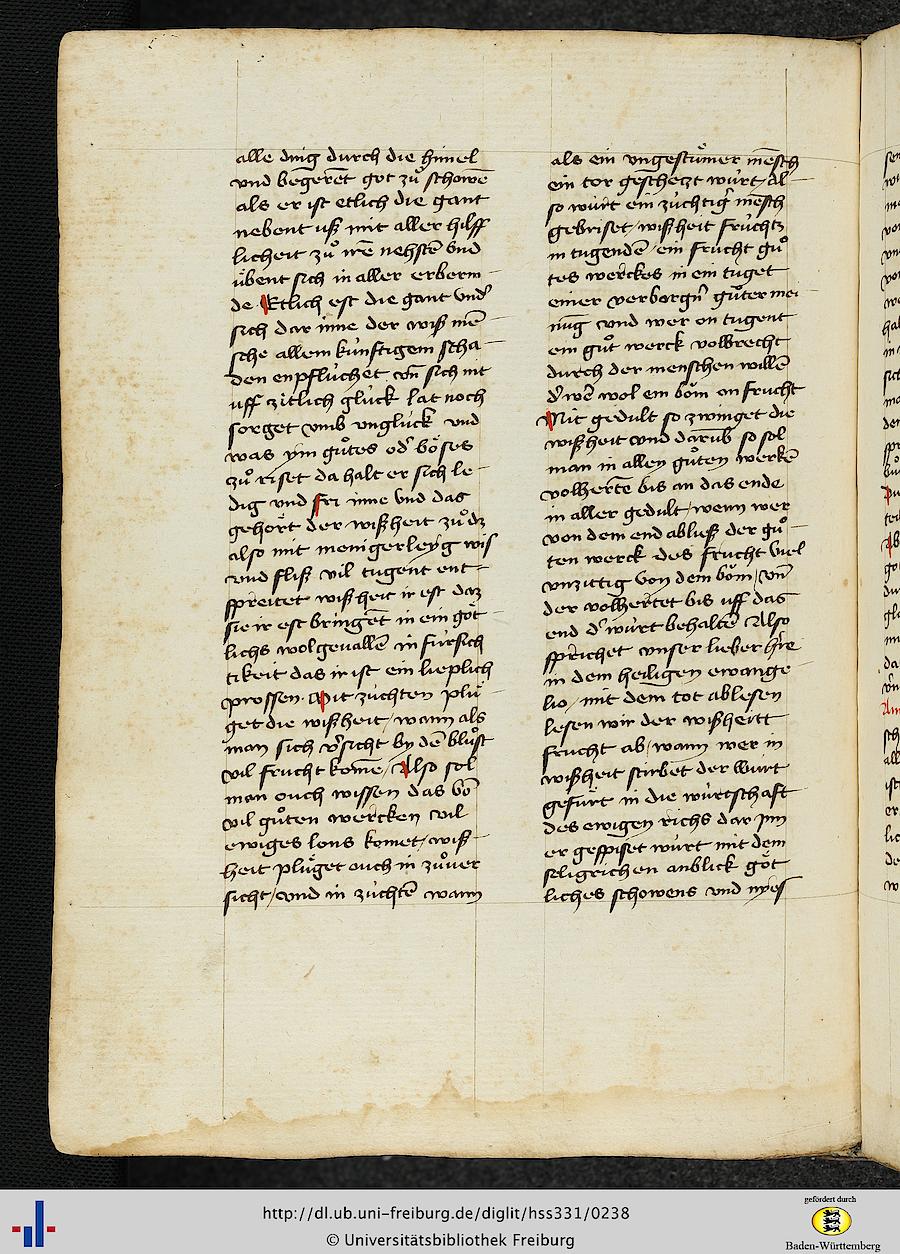 alle ding durch die himel
vnd begerēt got zů schowē
als er ist etlich die gant
nebent uſz mit aller hilff
licheit zů irē nehstē vnd
übent sich in aller erberm
de Etlich est die gant vnd᷑
sich dar inne der wiſz mē
sche allem künftigem scha
den enpflüchet vn̄ sich nit
uff zitlich glück lat noch
sorget vmb vnglück vnd
was ym gůtes od᷑ böses
zů riset da halt er sich le
dig vnd fri inne vnd das
gehört der wiſzheit zů dz
also mit menigerleyg wis
vnd fliſz vil tugent ent
spreitet wiſzheit ir est daz
sie ir est bringent in ein göt
lichs wolgevallē in fürsich
tikeit das ir ist ein lieplich
prossen. Mit züchten plü
get die wiſzheit / wann als
man sich v᷑sicht by dē blůst
vil frucht kome / Also sol
man ouch wissen das vō
vil gůten wercken vil
ewiges lons komet / wiſz
heit plüget ouch in zůver
sicht / vnd in züchtē wann
als ein vngestůmer mēsch
ein tor geschetzt würt / al
so würt ein züchtig᷑ mēsch
gebriset / wiſzheit früchtz
in tugendē / ein frucht gů
tes werckes in ein tuget
einer verborgn᷑ gůter mei
nūg vnd wer on tugent
ein gůt werck volbrecht
durch der menschen willē
d᷑ wē wol ein bŏm on frucht
Mit gedult so zwinget die
wiſzheit vnd darūb so sol
man in allen gůten werkē
volhertē bis an das ende
in aller gedult / wenn wer
von dem end abließ der gů
ten werck des frucht viel
vnzittig von dem bŏm / vn̄
der volhertet bis uff das
end d᷑ würt behaltē Also
sprichet vnser lieber h᷑re
in dem heiligen ewange
lio / mit dem tot ablesen
lesen wir der wiſzheitt
frucht ab / wann wer in
wiſzheit stirbet der würt
gefürt in die würtschaft
des ewigen richs dar inn
er gespiset würt mit dem
seligrichen anblick göt
liches schowens vnd nyes
http://dl.ub.uni-freiburg.de/diglit/hss331/0238
© Universitätsbibliothek Freiburg
gefördert durch
Baden-Württemberg